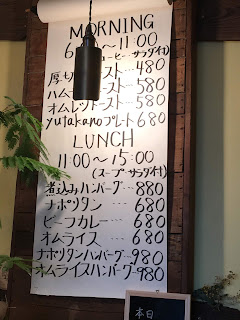 MORNING
6 11:00
コーヒー サラダ付
厚切 スト… 480
ハム スト… 580
オムレットースト… 580
yutakanoプレート 680
LUNCH
11:00～15:00
(スープ サラダ付)
煮込みハンバーグ… 880
ナポリタン … 680
ビーフカレー … 680
オムライス … 680
ナポリタンハンバーグ…980
オムライスハンバーグ…980
本日